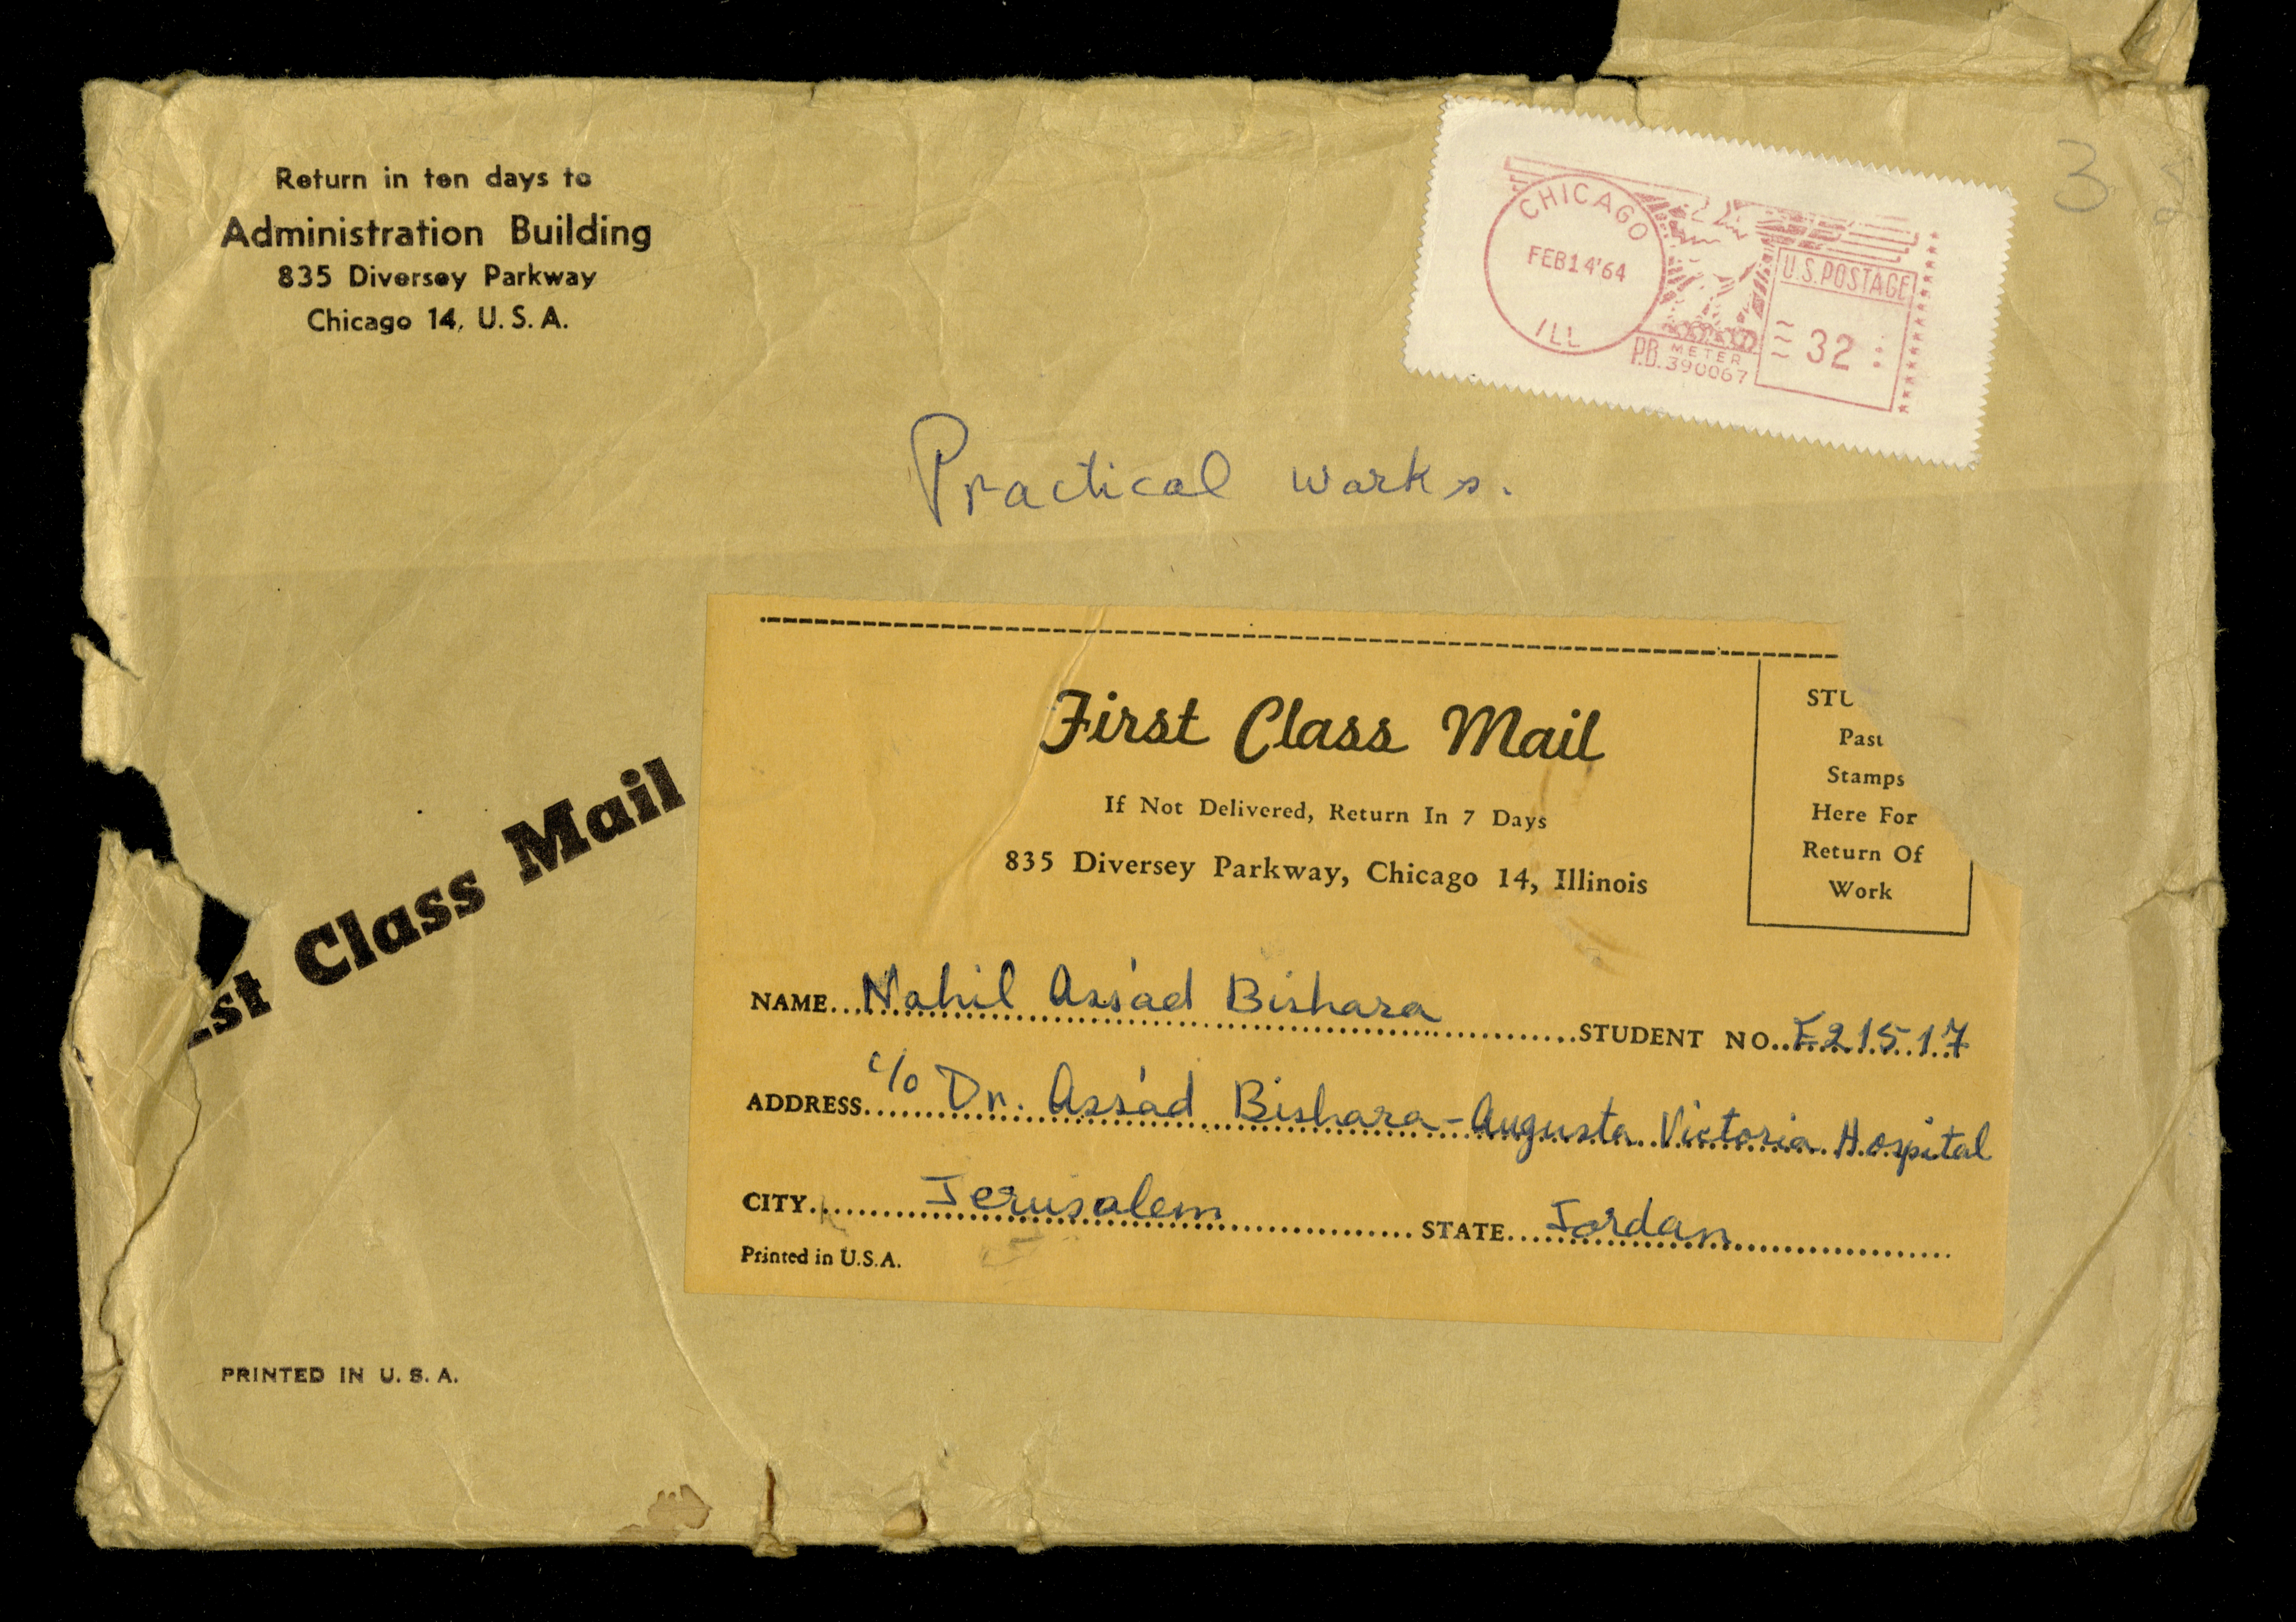 Return in ten days to
Administration Building
835 Diversey Parkway
Chicago 14, U. S. A.
CHICAGO
FEB14'64
ILL
U.S. POSTAGE
32
P.B. METER
390067
3
Practical works.
Class Mail
First Class Mail
If Not Delivered, Return In 7 Days
835 Diversey Parkway, Chicago 14, Illinois
STU
Past
Stamps
Here For
Return Of
Work
NAME Nahil Ass'ad Bishara STUDENT NO. E21517
ADDRESS c/o Dr. Ass'ad Bishara - Augusta Victoria Hospital
CITY Jerusalem STATE Jordan
Printed in U.S.A.
PRINTED IN U. S. A.